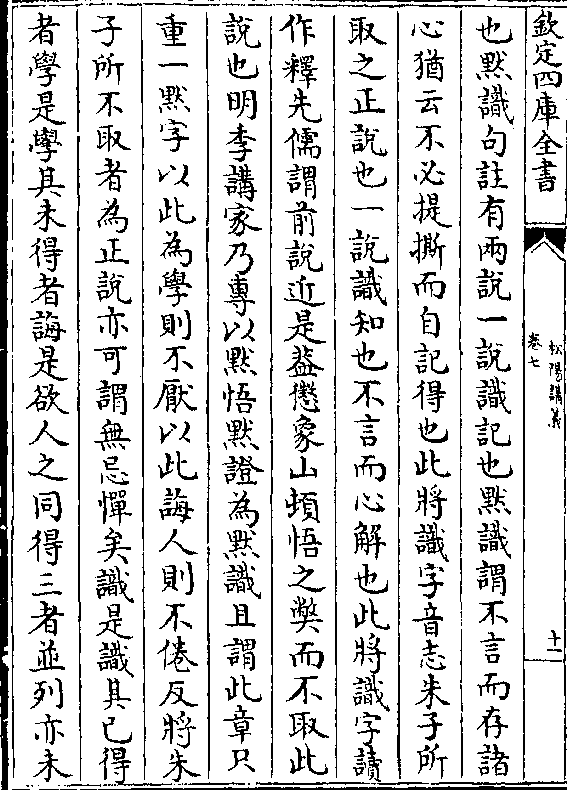 欽定四庫全書
松陽講義
卷七
十二
也默識句註有兩說一說識記也默識謂不言而存諸
心猶云不必提撕而自記得也此將識字音志朱子所
取之正說也一說識知也不言而心解也此將識字讀
作釋先儒謂前說近是葢懲象山頓悟之獘而不取此
說也明季講家乃專以默悟默證為默識且謂此章只
重一默字以此為學則不厭以此誨人則不倦反將朱
子所不取者為正說亦可謂無忌憚矣識是識其已得
者學是學其未得者誨是欲人之同得三者並列亦未